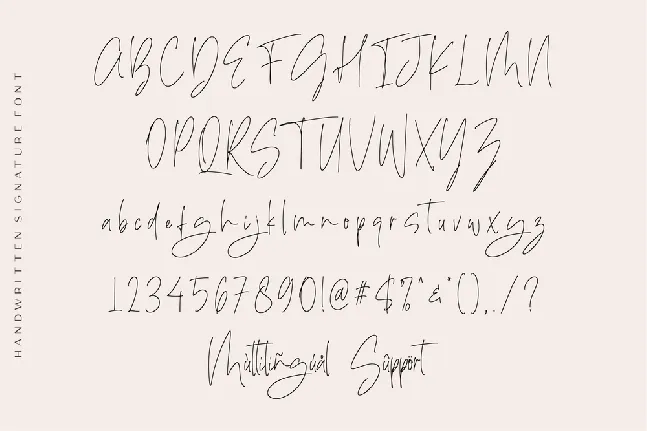 HANDWRITTEN SIGNATURE FONT
ABCDEFGHIJKLMN
OPQRSTUVWXYZ
abcdefghijklmnopqrstuvwxyz
1234567890!@#$%^&*(),./?
Mùltîlïñgúål Sûppört